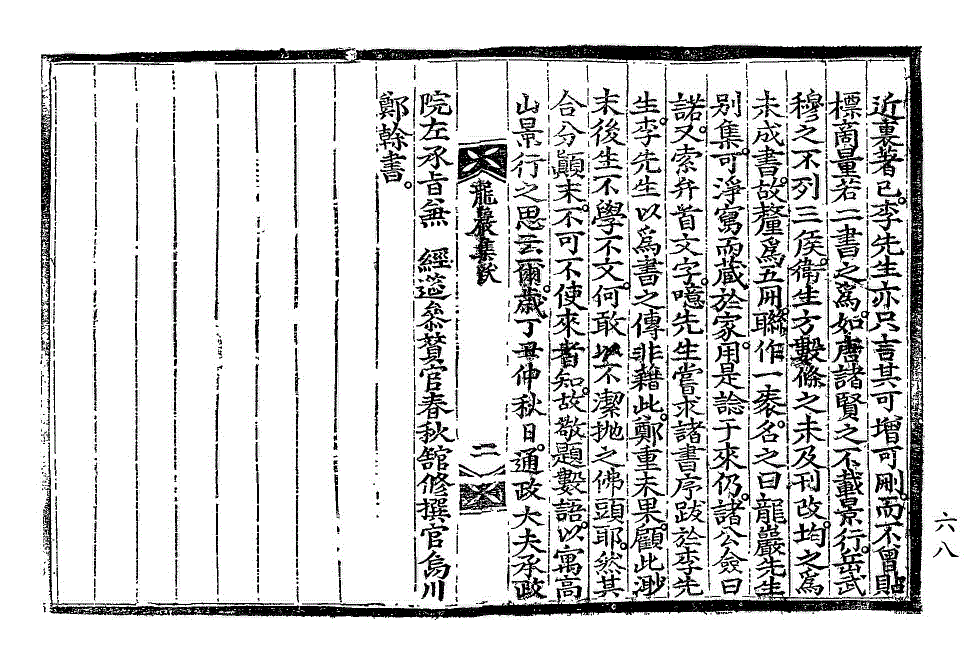 近裏著己李先生亦只言其可增可刪而不曾貼
標商量若二書之爲如唐諸賢之不載景行岳武
穆之不列三侯衛生方數條之未及刊改均之爲
未成書故釐爲五冊聯作一袠名之曰龍巖先生
別集可淨寫而藏於家用是諗于來仍諸公僉曰
諾又索弁首文字噫先生嘗求諸書序跋於李先
生李先生以爲書之傳非藉此鄭重未果顧此渺
末後生不學不文何敢以不潔抛之佛頭耶然其
合分顚末不可不使來者知故敬題數語以寓高
山景行之思云爾歲丁丑仲秋日通政大夫承政
龍巖集敘
二
院左承旨兼 經筵參贊官春秋館修撰官烏川
鄭榦書
六八